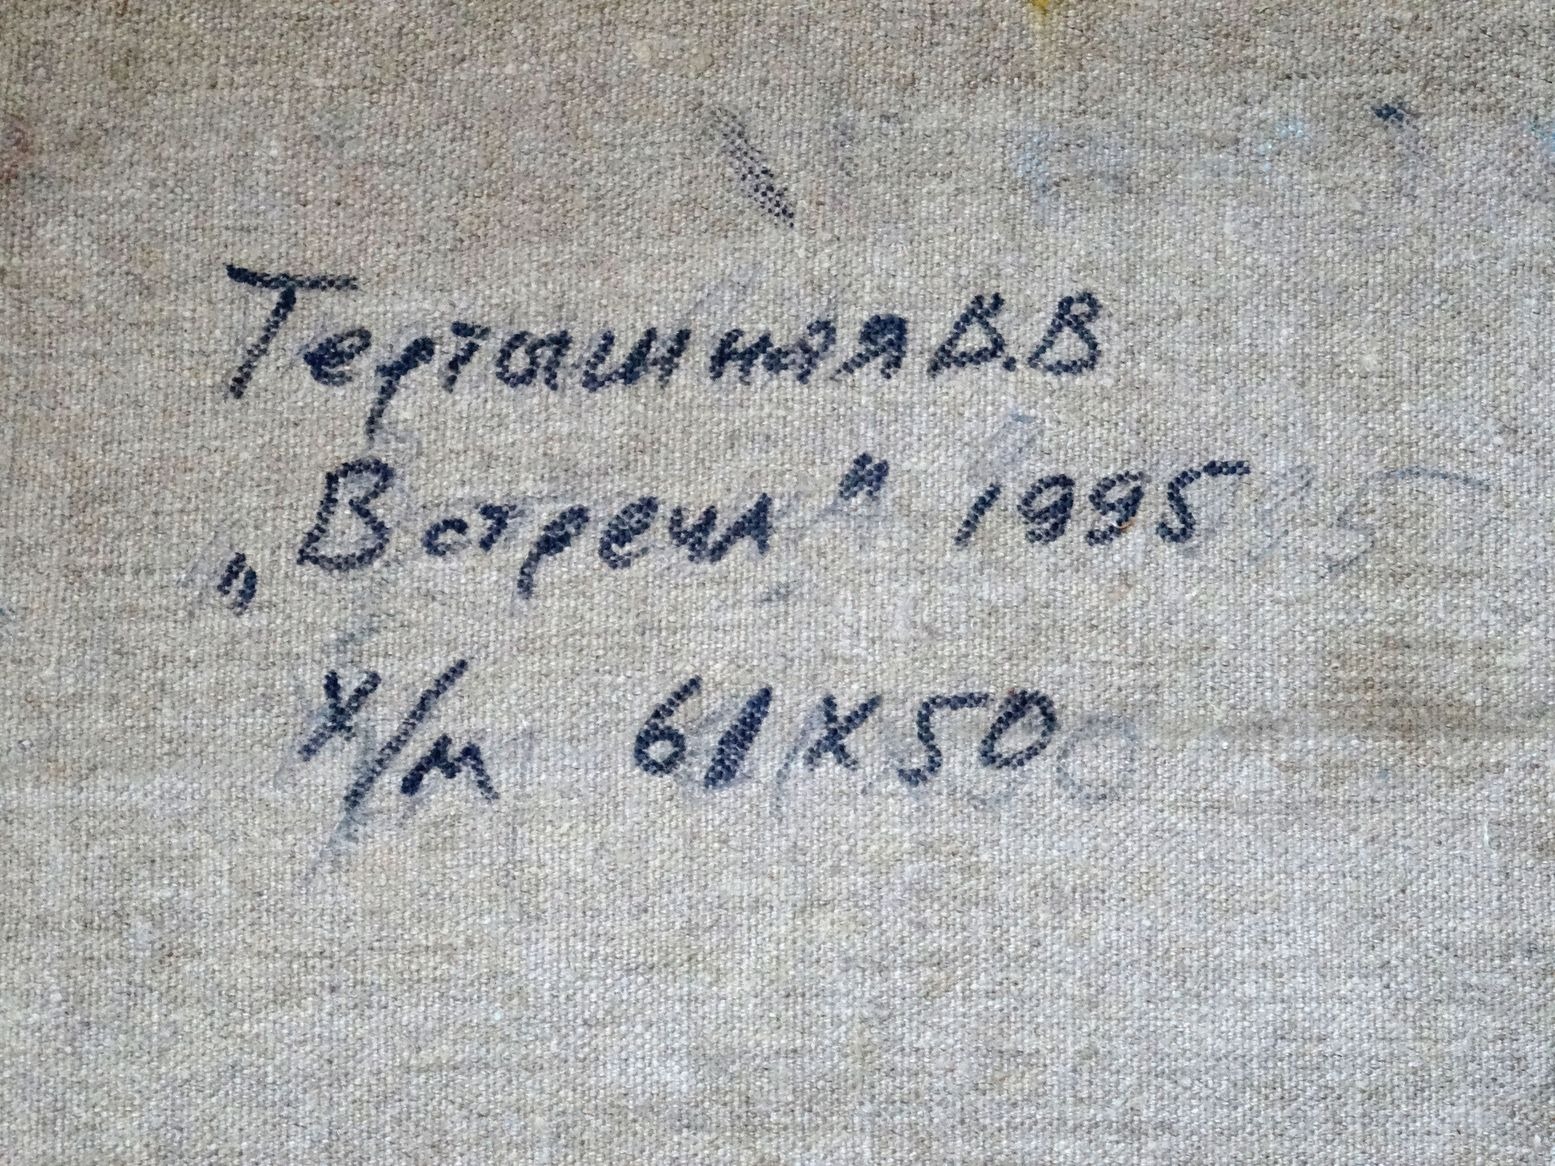 Терташная В.В
„Встреча" 1995
х/м 61х50